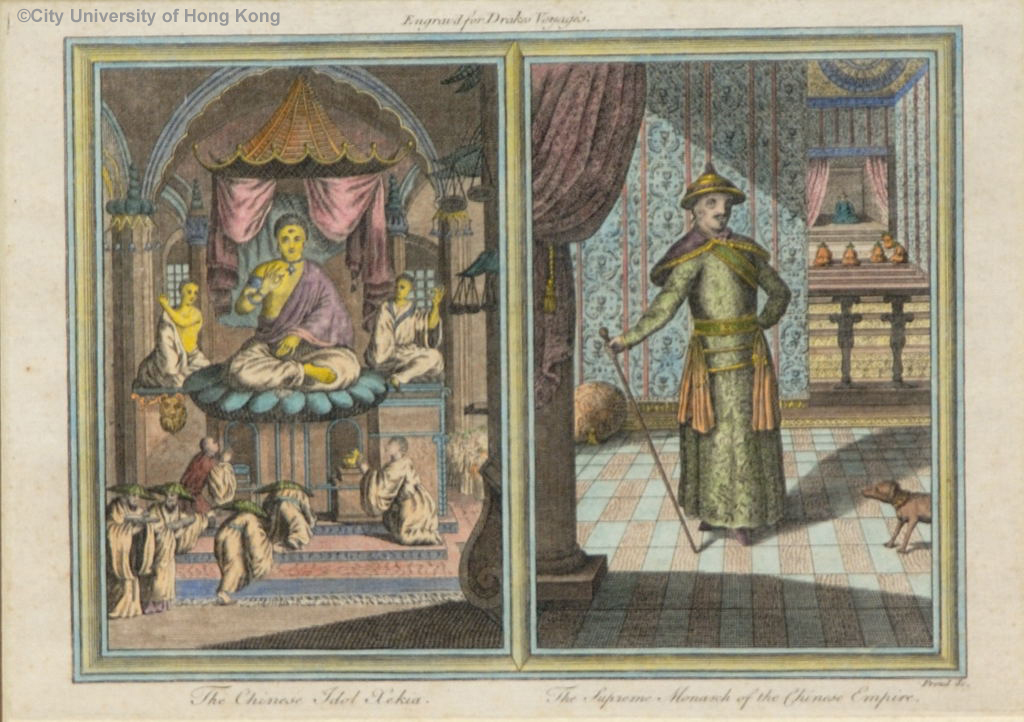 ©City University of Hong Kong
Engrav'd for Drakes Voyages.
The Chinese Idol Xekia.
The Supreme Monarch of the Chinese Empire.
Proud Sc.